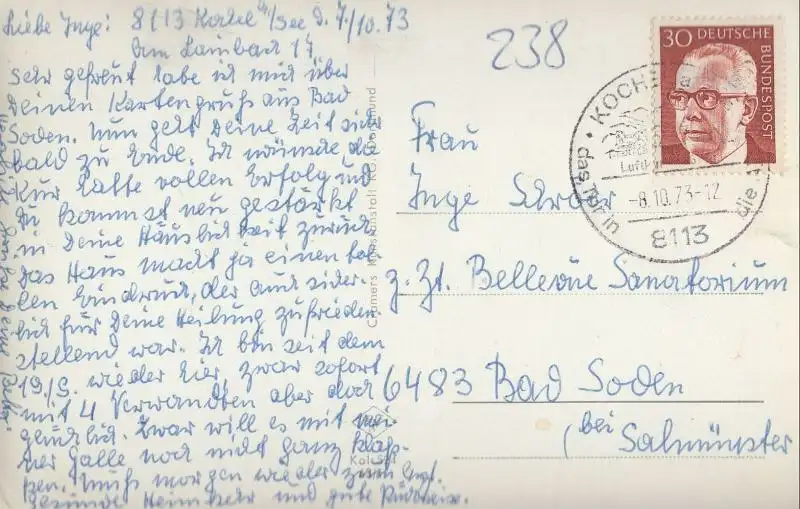 Liebe Inge! 8113 Kochel a/See d. 7/10.73
Am Lainbach 17
Sehr gefreut habe ich mich über
Deinen Kartengruß aus Bad
Soden. Nun geht Deine Zeit sicher
bald zu Ende. Ich wünsche die
Kur hatte vollen Erfolg und
Du kommst neu gestärkt
in Deine Häuslichkeit zurück.
Das Haus macht ja einen tol-
len Eindruck, der auch sicher-
lich für Deine Heilung zufrieden
stellend war. Ich bin seit dem
19/9. wieder hier, zwar sofort
mit 4 Verwandten aber doch
glücklich. Zwar will es mit mei
ner Galle noch nicht ganz klap-
pen. Muß morgen wieder zum Arzt.
Gesunde Heimkehr und gute
Herzliche Grüße Deine
238
Frau
Inge
z. Zt. Bellevue Sanatorium
6483 Bad Soden
(bei
Salmünster
Cramers Kunstanstalt KG, Dortmund
30 DEUTSCHE
BUNDESPOST
KOCHEL
das Tor in die
-8.10.73-12
8113